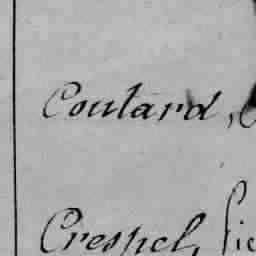 Coutard,
Crespel,